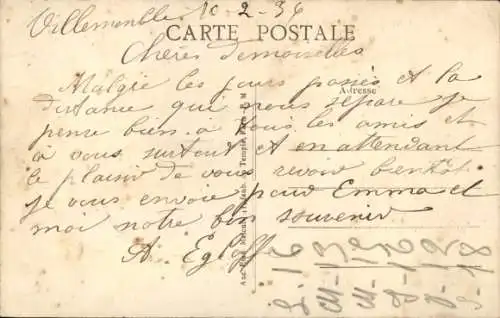 Villemomble 10-2-34
CARTE POSTALE
Chères demoiselles
Adresse
Malgré les jours passés et la
distance qui nous sépare je
pense bien à tous les amis et
à vous surtout et en attendant
le plaisir de vous revoir bientôt
je vous envoie pour Emma et
moi notre bon souvenir
A.